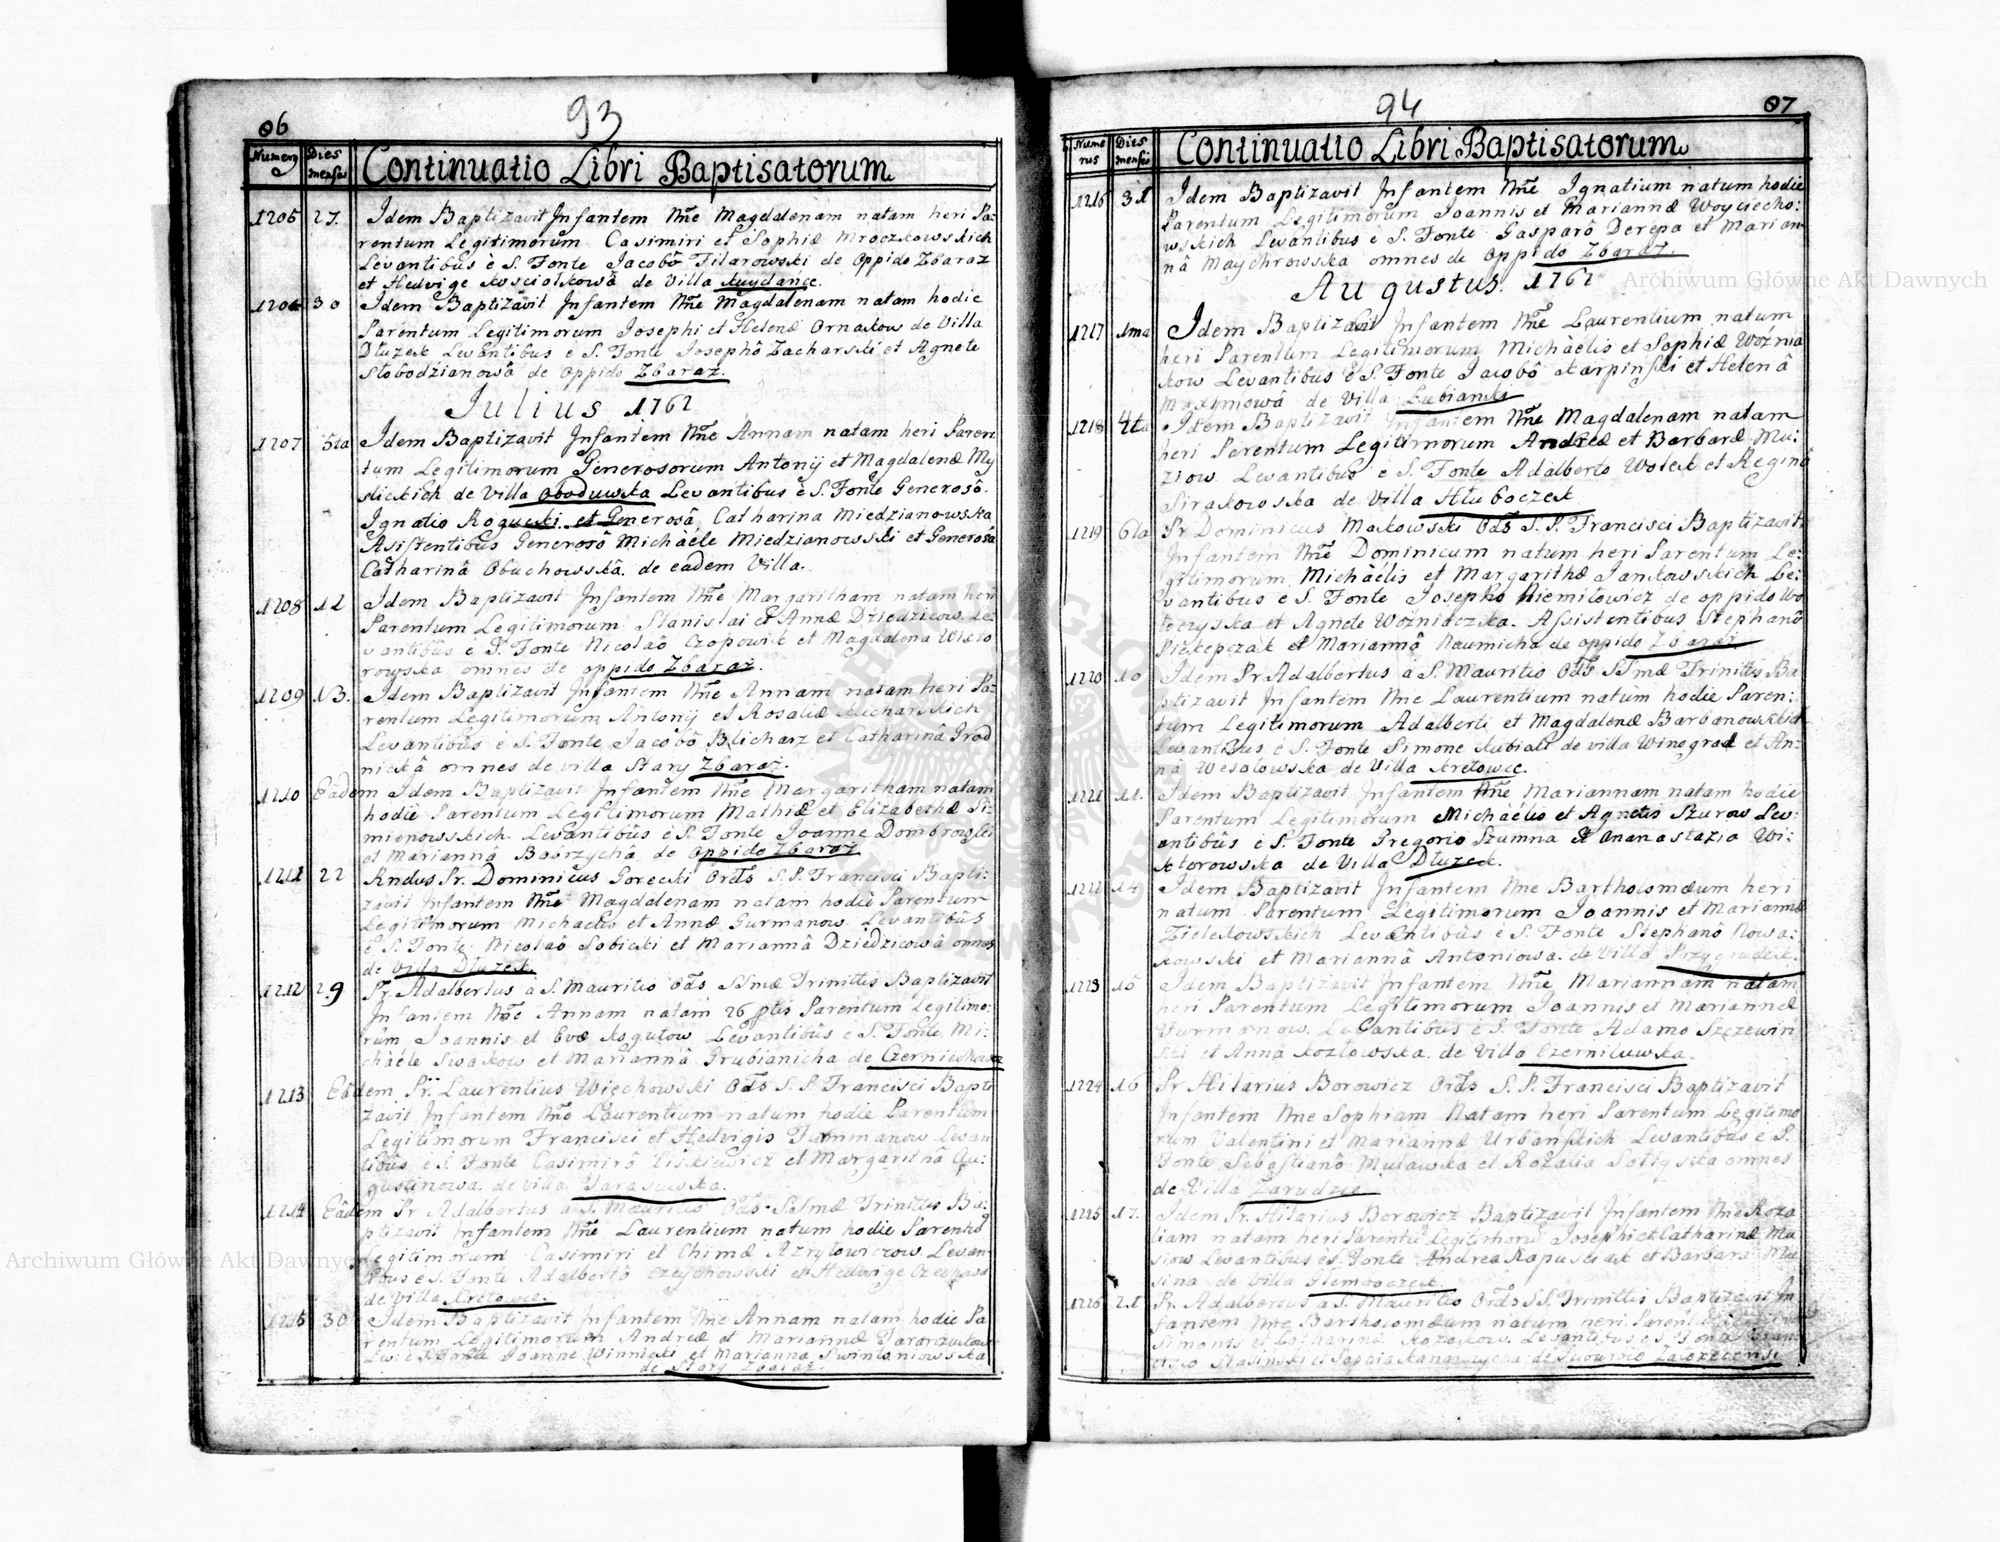 93
06
Numerus Dies mensis Continuatio Libri Baptisatorum
1205 27. Idem Baptizavit Infantem Nñe Magdalenam natam heri Pa-
rentum Legitimorum Casimiri et Sophiæ Mroczkowskich
Levantibûs è S. Fonte Jacobô Filarowski de Oppido Zbaraz
et Hedvige Kosciolkowâ de Villa
1206 30 Idem Baptizavit Infantem Nñe Magdalenam natam hodie
Parentum Legitimorum Josephi et Helenæ Ornakow de Villa
Dłuzek Levantibus è S. Fonte Josephô Zacharski et Agnete
Słobodzianowâ de Oppido Zbaraz.
Julius 1761
1207 5ta Idem Baptizavit Infantem Nñe Annam natam heri Paren
tum Legitimorum Generosorum Antonij et Magdalenæ My
slickich de Villa Oboduwka Levantibus è S. Fonte Generosô
Ignatio Rogucki et Generosâ Catharina Miedzianowska
Assistentibûs Generosô Michaële Miedzianowski et Generosâ
Catharinâ Obuchowskâ. de eadem Villa.
1208 12 Idem Baptizavit Infantem Nñe Margaritham natam heri
Parentum Legitimorum Stanislai et Annæ Dziedzicow Le-
vantibûs è S. Fonte Nicolaô Czopowik et Magdalena
rowska omnes de oppido Zbaraz.
1209 13. Idem Baptizavit Infantem Nñe Annam natam heri Pa-
rentum Legitimorum Antonij et Rosaliæ Kucharskich
Levantibûs è S. Fonte Jacobô Blicharz et Catharinâ Grod
nickâ omnes de villa Stary Zbaraz.
1210 Eadem Idem Baptizavit Infantem Nñe Margaritham natam
hodie Parentum Legitimorum Mathiæ et Elizabethæ Si-
mienowskich. Levantibûs è S. Fonte Joanne Dombrowski
et Mariannâ de Oppido Zbaraz
1211 22 Andus Pr. Dominicus Gorecki Ordis S. P. Francisci Bapti-
zavit Infantem Nñe Magdalenam natam hodiè Parentum
Legitimorum Michaelis et Annæ Gurmanow. Levantibûs
è S. Fonte Nicolaô Sobicki et Mariannâ Dziedzicowâ omnes
de Villa Dłuzek.
1212 29 Pr. Adalbertus à S. Mauritio Ordis SSmæ Trinittis Baptizavit
Infantem Nñe Annam natam 26 ptis Parentum Legitimo-
rum Joannis et Evæ Levantibûs è S. Fonte Mi-
chaële Swakow et Mariannâ Grubianicha de
1213 Eâdem Pr. Laurentius Więchowski Ordis S. P. Francisci Bapti
zavit Infantem Nñe Laurentium natum hodie Parentum
Legitimorum Francisci et Hedvigis Levan
tibûs è S. Fonte Casimirô Liskiewicz et Margarithâ Au-
gustinowa. de villa
1214 Eâdem Pr Adalbertus à S. Mauritio Ordis SSmæ Trinittis Ba-
ptizavit Infantem Nñe Laurentium natum hodie Parentū
Legitimorum Casimiri et Levan-
tibus è S. Fonte Adalbertô et Hedvige
de Villa Kretowce.
1215 30 Idem Baptizavit Infantem Nñe Annam natam hodie Pa
rentum Legitimorum Andreæ et Mariannæ
Joanne Winnicki et Marianna
de Stary Zbaraz.
94
07
Numerus Dies mensis Continuatio Libri Baptisatorum
1216 31 Idem Baptizavit Infantem Nñe Ignatium natum hodie
Parentum Legitimorum Joannis et Mariannæ Woyciecho-
wskich Levantibus è S. Fonte Gasparô Derepa et Marian
nâ Maychrowska omnes de Oppido Zbaraz.
Augustus. 1761
1217 1ma Idem Baptizavit Infantem Nñe Laurentium natum
heri Parentum Legitimorum Michaëlis et Sophiæ Woźnia
kow Levantibus è S. Fonte Jacobô Karpinski et Helenâ
Maxymowâ de Villa Lubianki
1218 4ta Idem Baptizavit Infantem Nñe Magdalenam natam
heri Parentum Legitimorum Andreæ et Barbaræ Mu-
ziow Levantibus è S. Fonte Adalberto Wołek et Reginâ
Sirakowska de Villa Hłuboczek
1219 6ta Pr Dominicus Makowski Ordis S. P. Francisci Baptizavit
Infantem Nñe Dominicum natum heri Parentum Le-
gitimorum Michaëlis et Margarithæ Jankowskich Le-
vantibus è S. Fonte Josepho Niemiłowicz de oppido Wo
łoczyska et Agnete Woźniaczka. Assistentibus Stephanô
et Mariannâ Naumicha de oppido Zbaraz
1220 10 Idem Pr Adalbertus à S. Mauritio Ordis SSmæ Trinittis Ba
ptizavit Infantem Nñe Laurentium natum hodie Paren-
tum Legitimorum Adalberti et Magdalenæ Barbanowskich
Levantibus è S. Fonte Simone Kubiak de villa Winograd et An-
nâ Wesołowska de Villa Kretowce.
1221 11. Idem Baptizavit Infantem Nñe Mariannam natam hodie
Parentum Legitimorum Michaëlis et Agnetis Szurow Lev-
antibûs è S. Fonte Gregorio Szumna et Anastazia Wi-
ktorowska de Villa Dłuzek.
1222 14 Idem Baptizavit Infantem Nñe Bartholomæum heri
natum Parentum Legitimorum Joannis et Mariannæ
Zielekowskich Levantibûs è S. Fonte Stephanô Nowa-
kowski et Mariannâ Antoniowa. de Villa
1223 15 Idem Baptizavit Infantem Nñe Mariannam natam
heri Parentum Legitimorum Joannis et Mariannæ
Furmanow. Levantibus è S. Fonte Adamo Szczewin
ski et Anna Kozłowska. de Villa Czerniluwka.
1224 16 Pr Hilarius Borowicz Ordis S. P. Francisci Baptizavit
Infantem Nñe Sophiam Natam heri Parentum Legitimo
rum Valentini et Mariannæ Urbanskich Levantibus è S.
Fonte Sebastianô Mulawka et Rozalia Sołtyska omnes
de Villa Zarudzie
1225 17. Idem Pr. Hilarius Borowicz Baptizavit Infantem Nñe Roza
liam natam heri Parentū Legitimorū Josephi et Catharinæ Mu
siow Levantibus è S. Fonte Andrea Kapusciak et Barbara Mu
sina de Villa
1226 21 Pr. Adalbertus à S. Mauritio Ordis SS. Trinittis Baptizavit In
fantem Nñe Bartholomæum natum heri
Simonis et Catharinæ Kozakow. Levantibus è S. Fonte
Stasinski et Sophia
Archiwum Główne Akt Dawnych
Archiwum Główne Akt Dawnych